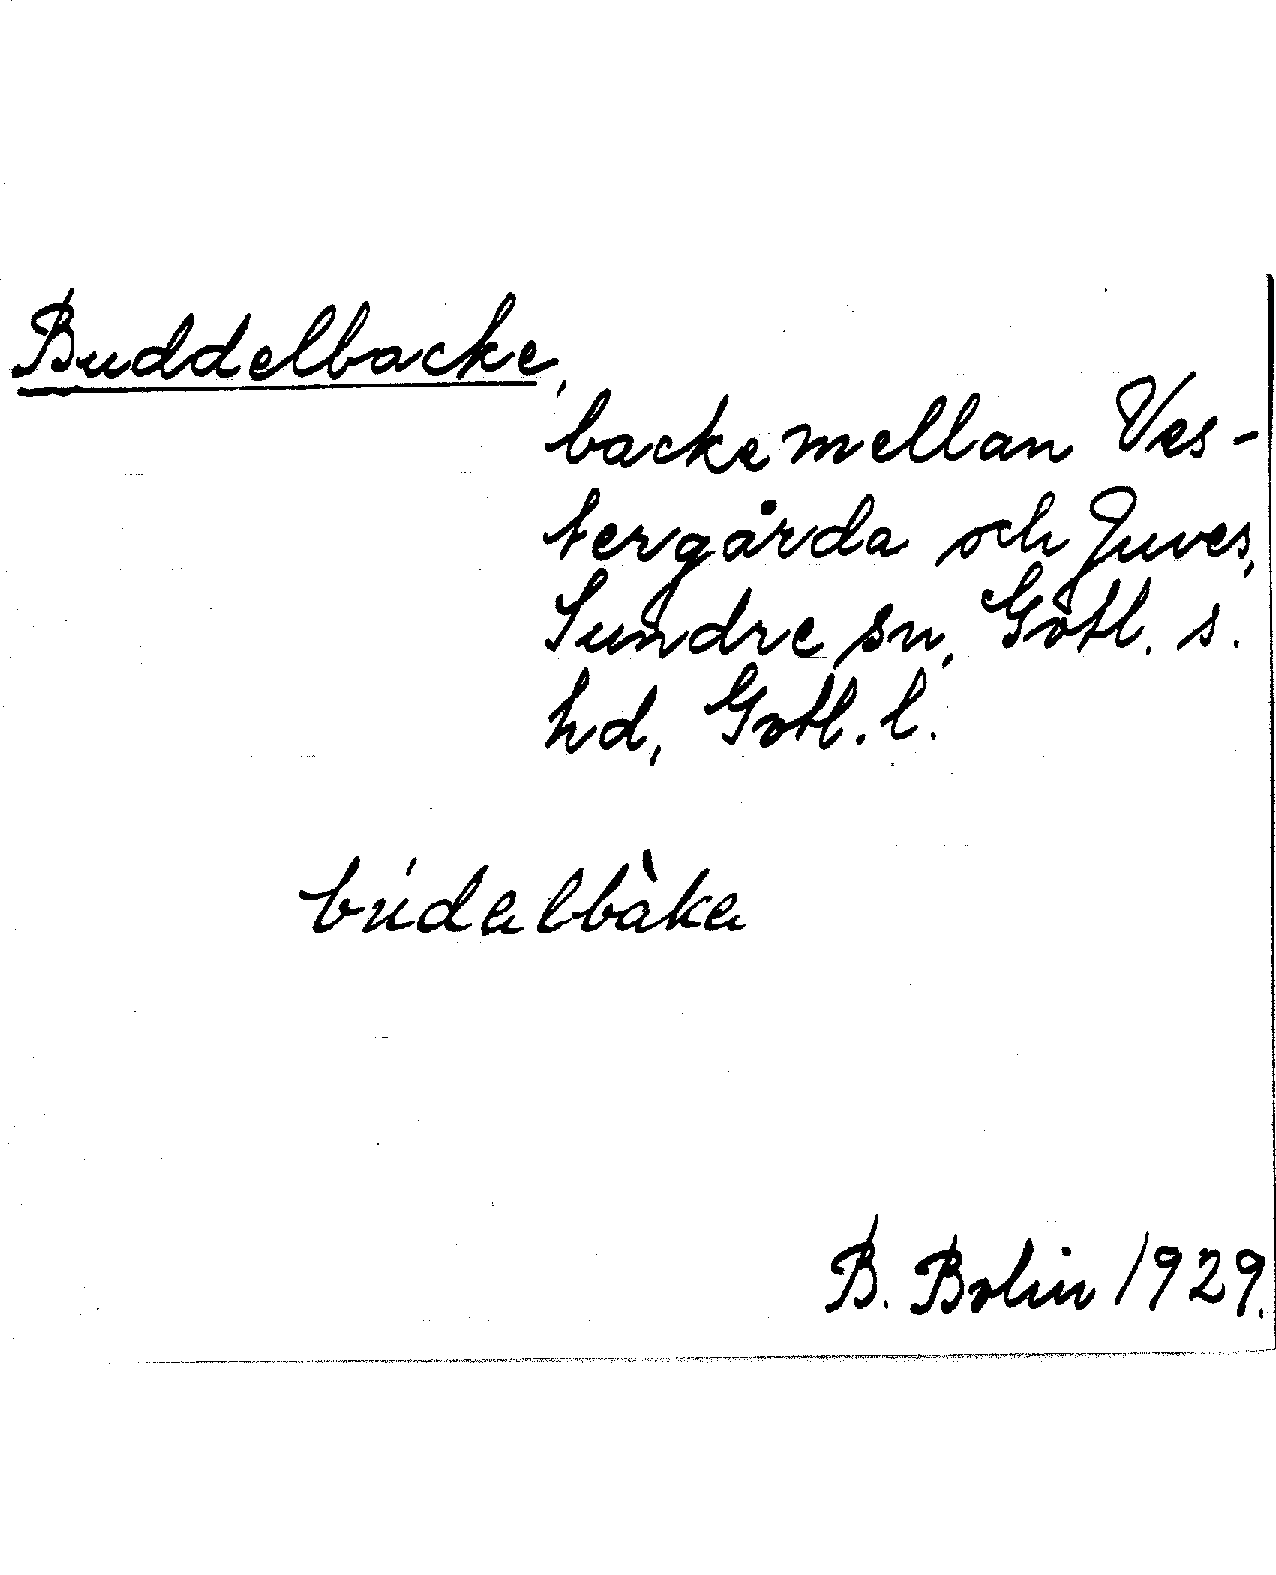 Buddelbacke,
backe mellan Ves-
tergårda och Juves,
Sundre sn, Gotl. s.
hd, Gotl. l.
búdalbàka
B. Bolin 1929.